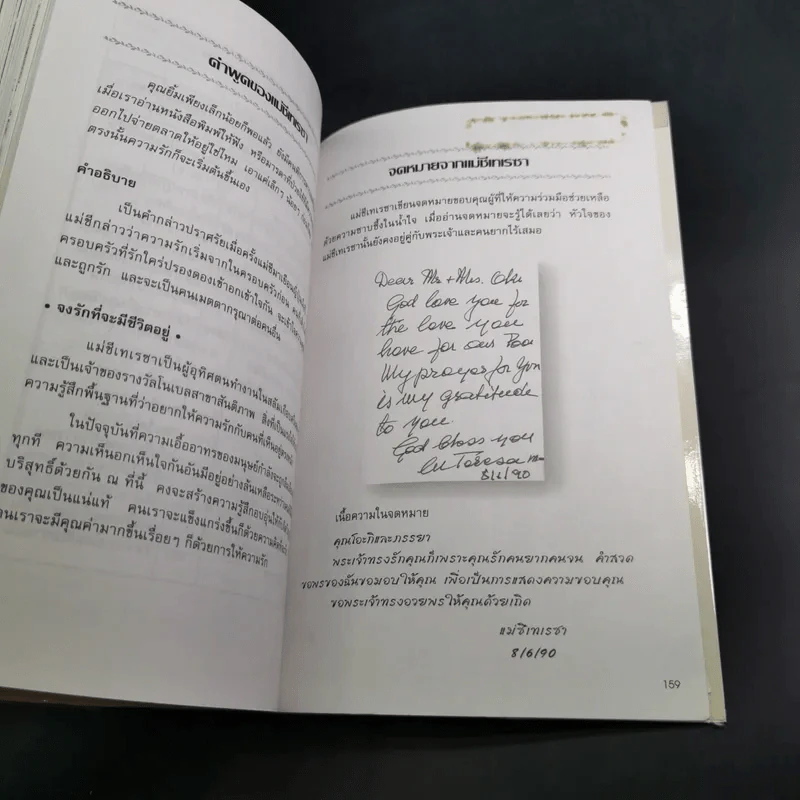 คำพูดของแม่ชีเทเรซา
คุณยิ้มเพียงเล็กน้อยก็พอแล้ว
เมื่อเราอ่านหนังสือพิมพ์ให้ฟัง
ออกไปจ่ายตลาดให้อยู่ใช่ไหม เอาแค่เล็กๆ
ตรงนั้นความรักก็จะเริ่มต้นขึ้นเอง
คำอธิบาย
เป็นคำกล่าวปราศรัยเมื่อครั้งแม่ชีมาเยือน
แม่ชีกล่าวว่าความรักเริ่มจากในครอบครัวก่อน
ครอบครัวที่รักใคร่ปรองดองเข้าอกเข้าใจกัน
และถูกรัก และจะเป็นคนเมตตากรุณาต่อคนอื่น
• จงรักที่จะมีชีวิตอยู่ •
แม่ชีเทเรซาเป็นผู้อุทิศตนทำงานในสลัม
และเป็นเจ้าของรางวัลโนเบลสาขาสันติภาพ
ความรู้สึกพื้นฐานที่ว่าอยากให้ความรักกับคนที่
ในปัจจุบันที่ความเอื้ออาทรของมนุษย์กำลัง
ทุกที ความเห็นอกเห็นใจกันอันมีอยู่อย่างล้นเหลือ
บริสุทธิ์ด้วยกัน ณ ที่นี้ คงจะสร้างความรู้สึกอบอุ่นให้
ของคุณเป็นแน่แท้ คนเราจะแข็งแกร่งขึ้นก็ด้วยความ
คนเราจะมีคุณค่ามากขึ้นเรื่อยๆ ก็ด้วยการให้ความรัก
จดหมายจากแม่ชีเทเรซา
แม่ชีเทเรซาเขียนจดหมายขอบคุณผู้ที่ให้ความร่วมมือช่วยเหลือ
ด้วยความซาบซึ้งในน้ำใจ เมื่ออ่านจดหมายจะรู้ได้เลยว่า หัวใจของ
แม่ชีเทเรซานั้นยังคงอยู่คู่กับพระเจ้าและคนยากไร้เสมอ
Dear Mr + Mrs. Oki
God love you for
the love you
have for our Poor
My prayer for you
is my gratitude
to you.
God bless you
M Teresa MC
8/6/90
เนื้อความในจดหมาย
คุณโอะกิและภรรยา
พระเจ้าทรงรักคุณก็เพราะคุณรักคนยากคนจน คำสวด
ขอพรของฉันขอมอบให้คุณ เพื่อเป็นการแสดงความขอบคุณ
ขอพระเจ้าทรงอวยพรให้คุณด้วยเถิด
แม่ชีเทเรซา
8/6/90
159